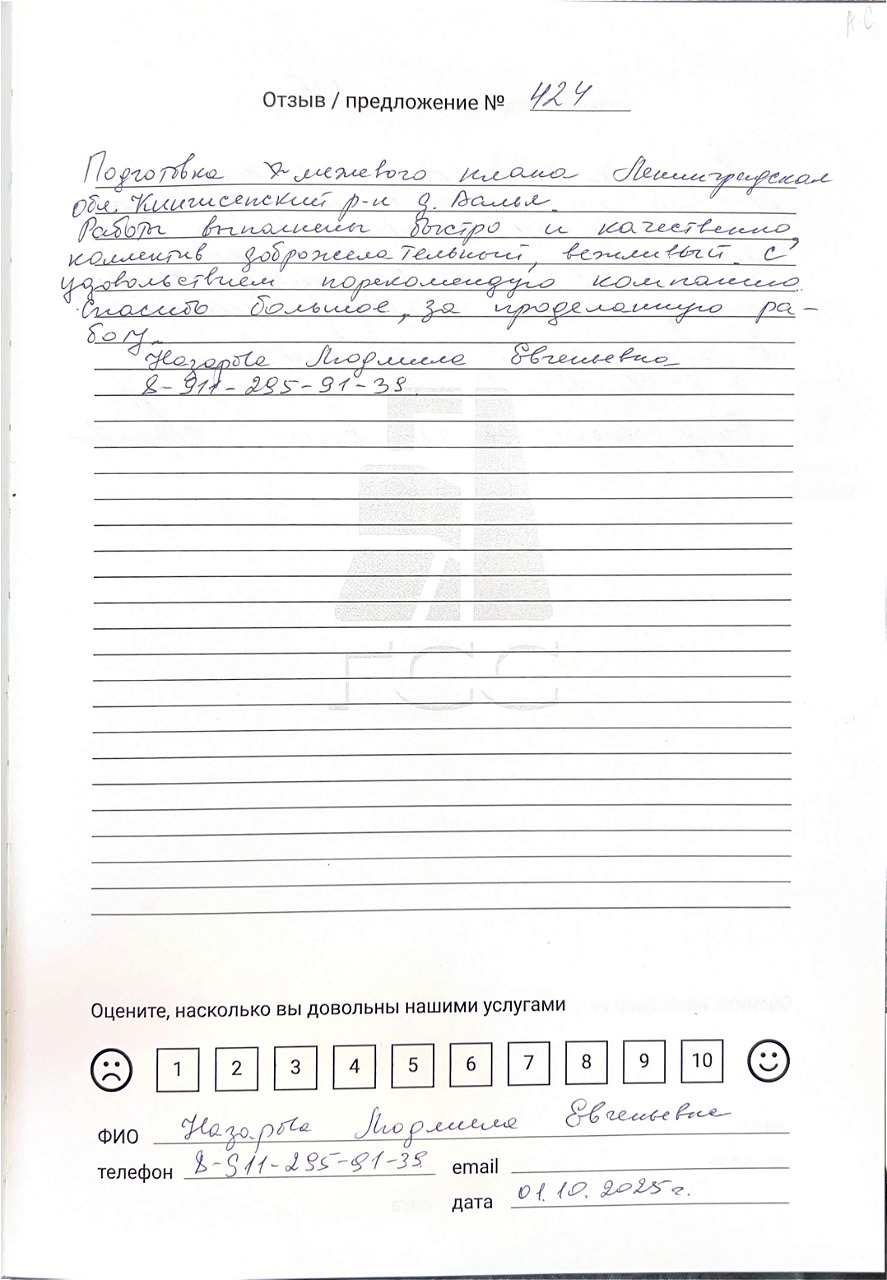 А-С
Отзыв / предложение № 424
Подготовка межевого плана Ленинградская
обл. Кингисепский р-н д. Валья.
Работы выполнены быстро и качественно,
коллектив доброжелательный, вежливый. С
удовольствием порекомендую компанию.
Спасибо большое, за проделанную ра-
боту.
Назарова Людмила Евгеньевна
8-911-295-91-39.
ГСС
Оцените, насколько вы довольны нашими услугами
1 2 3 4 5 6 7 8 9 10
ФИО Назарова Людмила Евгеньевна
телефон 8-911-295-91-39 email
дата 01.10.2025г.